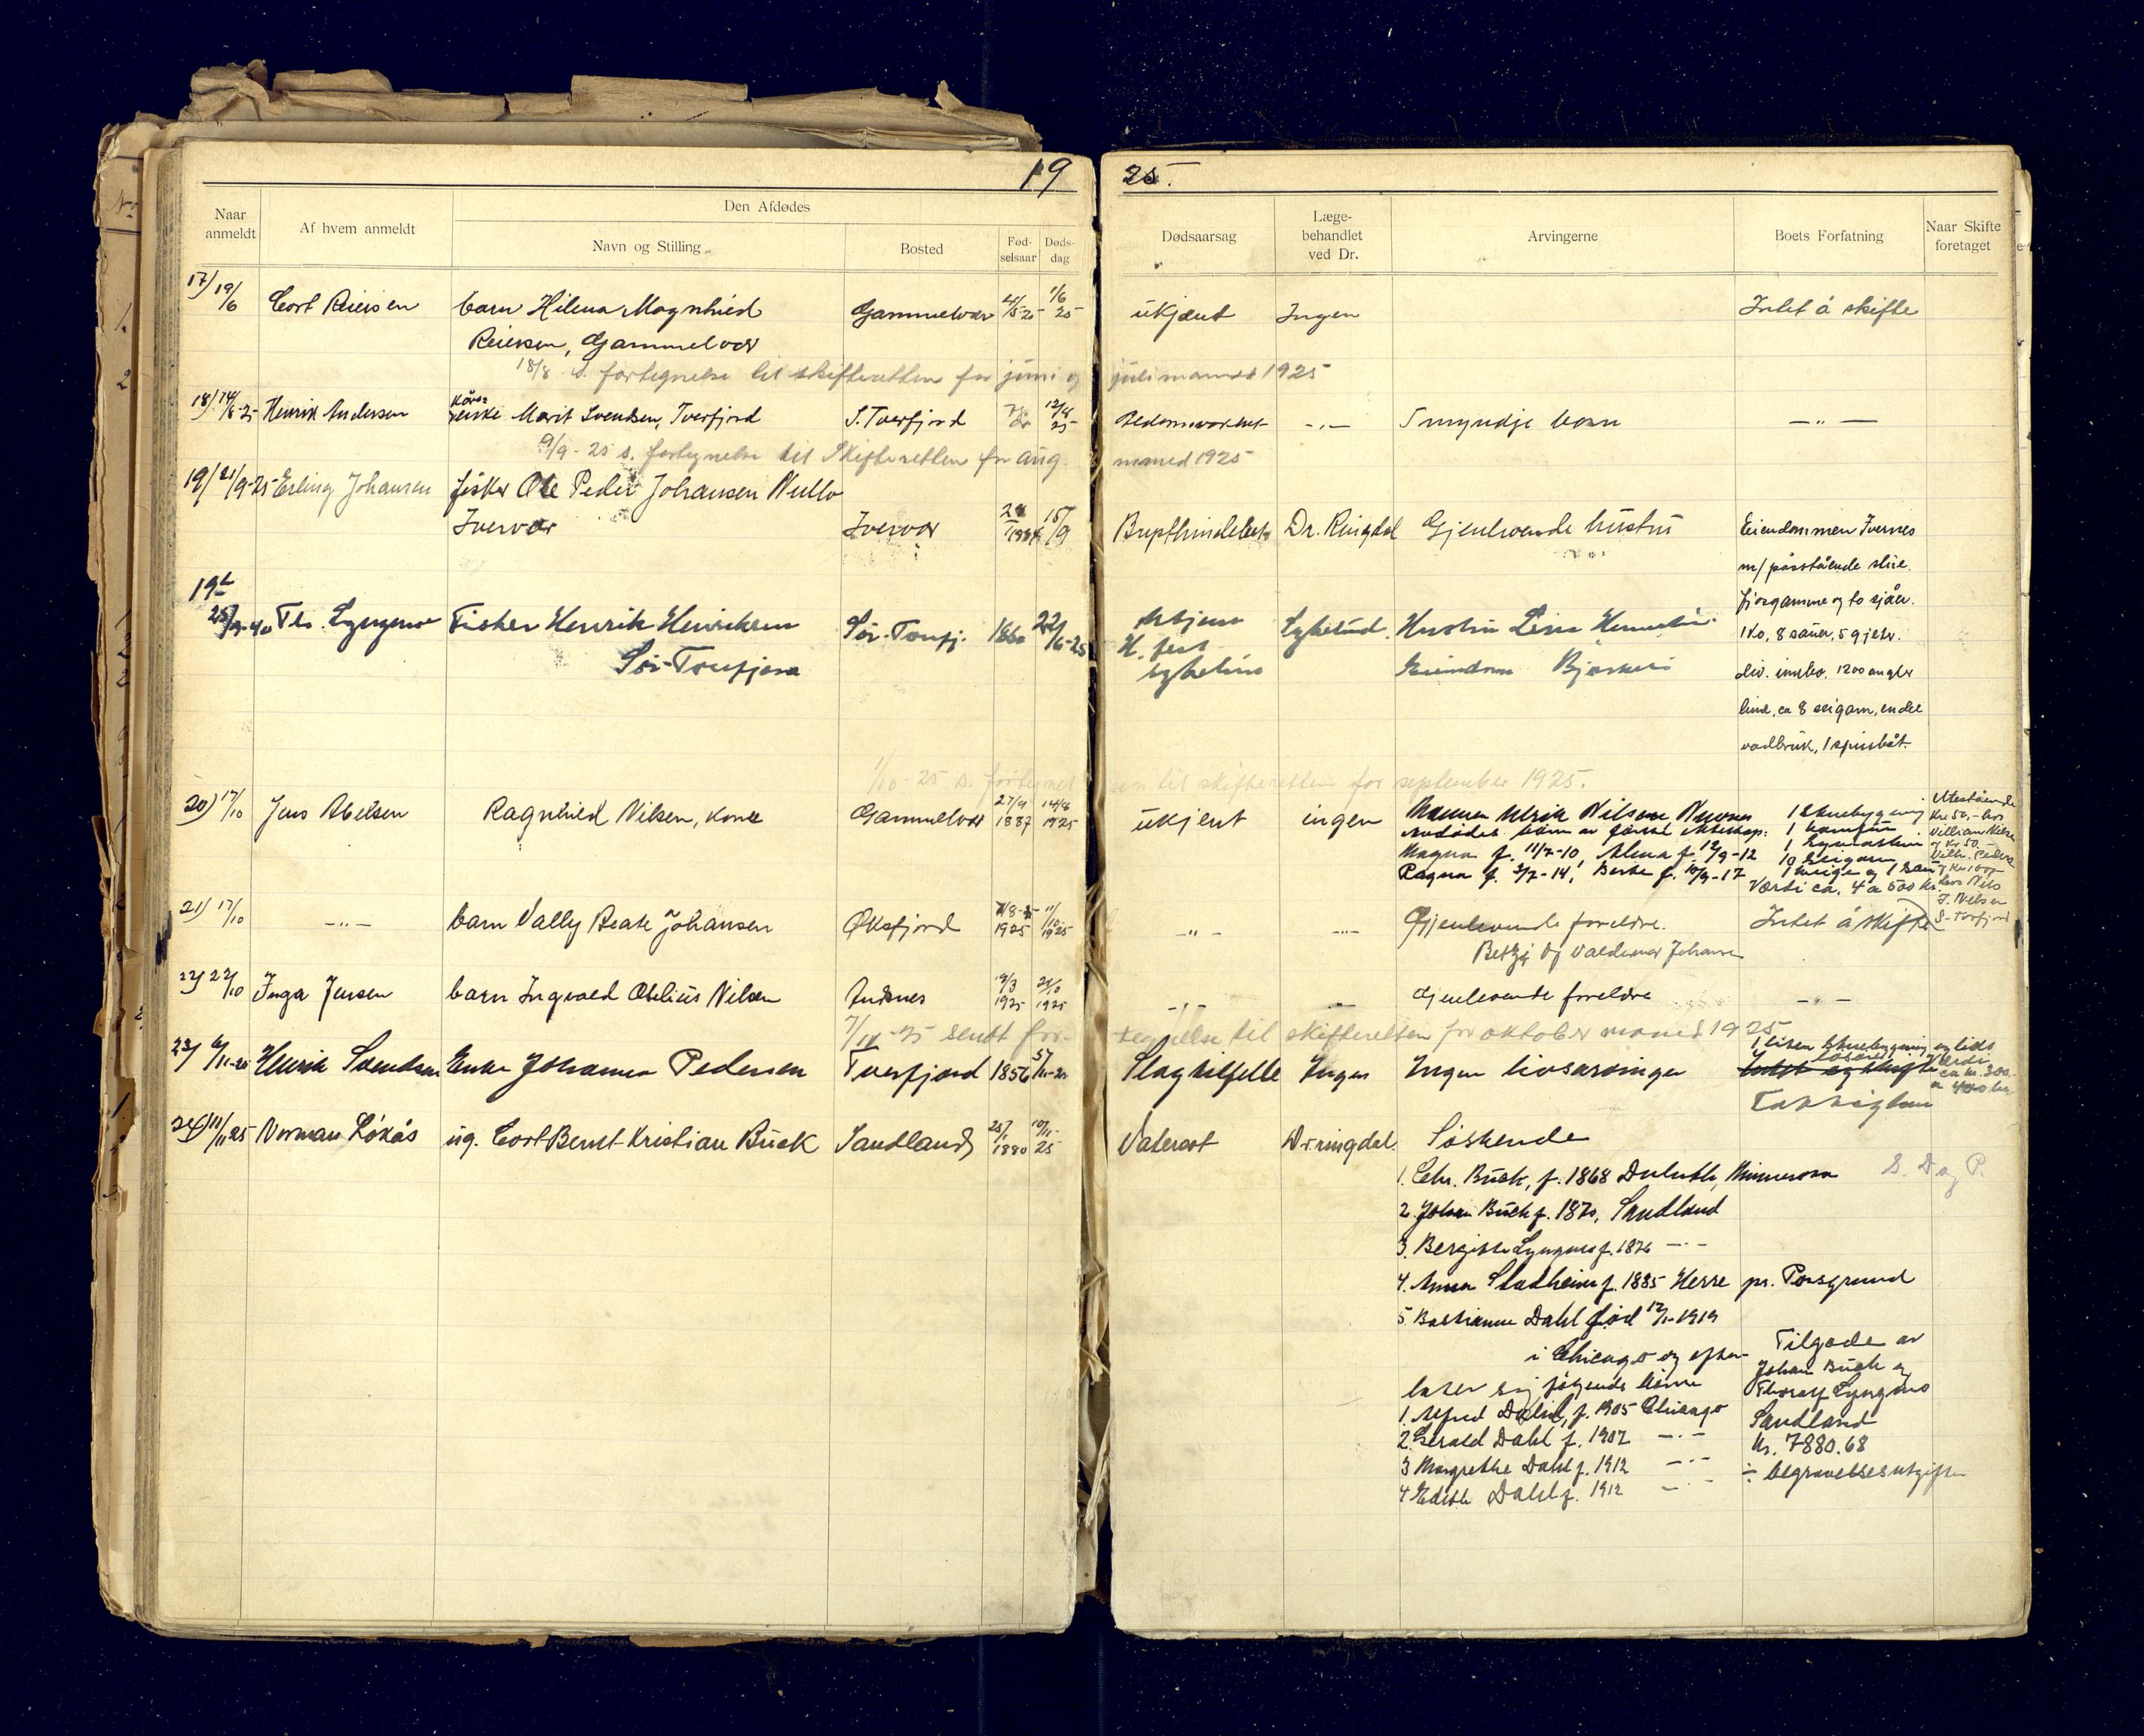 19 25.
Naar anmeldt
Af hvem anmeldt
Den Afdødes
Navn og Stilling
Bosted
Fød-
selsaar
Døds-
dag
Dødsaarsag
Læge-
behandlet
ved Dr.
Arvingerne
Boets Forfatning
Naar Skifte
foretaget
17) 19/6 Cort Reiersen barn Hilena Magnhied Gammelvær 1/6 25 ukjent Ingen Intet å skifte
Reiersen, Gammelvær
18/8 s. fortegnelse til skifteretten for juni og juli maaned 1925
18) 14/8-25 Henrik Andersen enke Marit Svendsen, Tverfjord S. Tverfjord 12/8 25 -"- 5 myndje barn -"-
9/9-25 s. fortegnelse til Skifteretten for aug. maned 1925
19/ 21/9-25 Erling Johansen fisker Ole Peder Johansen Nullo
Iversvær Iversvær 15/9 Dr. Ringdal Gjenlevende hustru Eiendommen Ivernes
m/ påstående
fjøsgamme og to sjåer.
1 ko, 8 sauer, 5 gjeter.
div. innbo. 1200 angler
line, ca 8 seigarn, endel
vadbruk, 1 spissbåt.
19b
Th. Lyngmo Fisker Henrik Henriksen Sør-Tverfj. 1860 22/6-25 Hustru
Sør-Tverfjord H.fest
Eiendom
1/10-25 s. fortegnelsen til skifteretten for september 1925.
20) 17/10 Jens Abelsen Ragnhild Nilsen, kone Gammelvær 27/9 1887 14/8 1925 ukjent ingen Mannen Ulrik Nilsen
Avdødes barn av første ekteskap:
Magna f. 11/7-10, Alma f. 12/9-12
Ragna f. 3/7-14, f. 10/9-17
10 seigarn
Værdi ca. 4 a 500 kr.
Utestående
kr 50,- hos
William Nilsen
og kr 50.-
hos Nils
J. Nilsen
S-Tverfjord
21) 17/10 -"- barn Vally Beate Johansen Øksfjord 1925 11/10 1925 -"- -"- Gjenlevende foreldre. Intet å skifte
og Valdemar Johansen
22) 22/10 Inga Jensen barn Ingvald Obelius Nilsen Andsnes 19/3 1925 1925 -"- Gjenlevende foreldre -"-
7/11-25 sendt fortegnelse til skifteretten for oktober maned 1925
23) 6/11-25 Henrik Svendsen Enke Johanna Pedersen Tverfjord 1856 5/11-25 Slagtilfelle Ingen Ingen livsarvinger
1 liten
Værdi
ca kr. 300.-
a 400 kr
24) 11/11 25 Norman Løkås ug. Cort Bernt Kristian Buck Sandland 1880 10/11-25 Vatersot Dr ringdal. Søskende
1. Chr. Buck, f. 1868 Duluth, Minnesosa
S. D og P.
2. Johan Buck f. 1870, Sandland
3. Bergitte Lyngmo f. 1876 -"-
4. Anna Stadheim f. 1885 Herre pr. Porsgrund
5. Bastianne Dahl død 12/1-1919
i Chicago og efter-
later sig følgende barn
1. Alfred Dahl, f. 1905 Chicago
2. Gerald Dahl f. 1907 -"-
3 Margrethe Dahl f. 1912 -"-
4 Edith Dahl f. 1912 -"-
Tilgode av
Johan Buck og
Thoralf Lyngmo
Sandland
Kr. 7880.68
÷ begravelsesutgifter